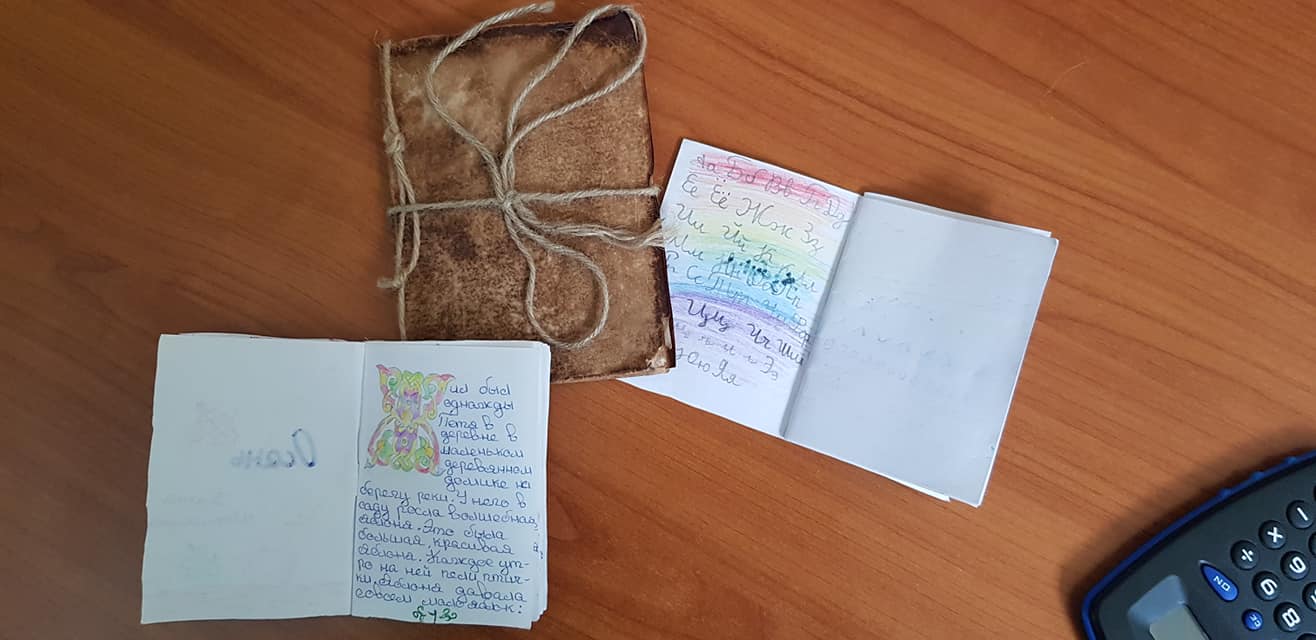 Осень
ил был
однажды
Петя в
деревне в
маленьком
деревянном
домике на
берегу реки. У него в
саду росла волшебная
яблоня. Это была
большая, красивая
яблоня. Каждое ут-
ро на ней пели птич-
ки. Яблоня давала
совсем мало яблок:
Аа Бб Вв Гг Дд
Ее Ёё Жж Зз
Ии Йй Кк Лл
Мм Нн
Сс Тт
Цц Чч Шш
ы ь Ээ
Юю Яя
ON
÷
×
9
6
8